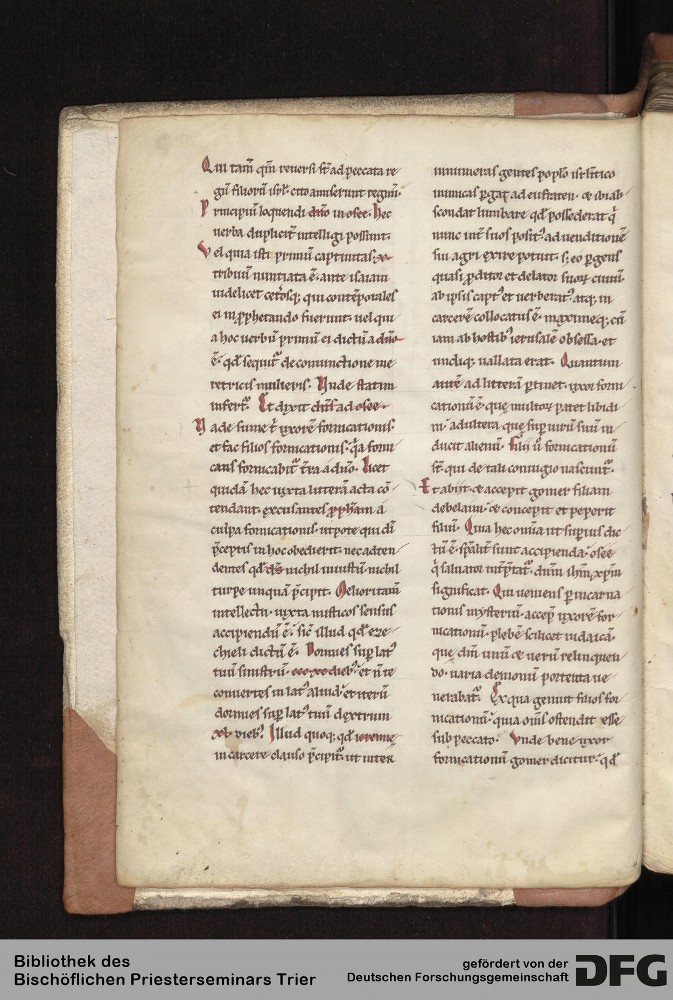 Qui tam̄ qm̄ reuersi st̄ ad peccata re
gū filiorū isrl̄ cito amiserunt regnū.
Principiū loquendi dn̄o in osee. Hec
uerba dupliciť intelligi possunt.
Vel quia isti primū captiuitas .x.
tribuū nuntiata ē. ante isaiam
uidelicet ceťosq; qui contēporales
ei in ꝓphetando fuerunt. uel qui
a hoc uerbū primū ei dictū a dn̄o
ē. qd̄ sequit᷑ de coniunctione me
retricis mulieris. Vnde statim
infert᷑. Et dixit dn̄s ad osee.
Vade sume t̄ uxorē fornicationis.
et fac filios fornicationis. q̄a forni
cans fornicabit᷑ t̄ra a dn̄o. Licet
quidā hec iuxta litterā acta cō
tendant. excusantes ꝓph̄am a
culpa fornicationis. utpote qui dī
p̄ceptis in hoc obedierit. nec adten
dentes qd̄ ds̄ nichil iniustū. nichil
turpe unquā p̄cipit. Meliori tam̄
intellectu. iuxta misticos sensus
accipiendū ē. sic̄ illud qd̄ eze
chieli dictū ē. Dormies suꝑ lat᷒
tuū sinistrū. ccc.xc dieb᷒. et n̄ te
conuertes in lat᷒ aliud. et iterū
dormies suꝑ lat᷒ tuū dextrum
xl. dieb᷒. Illud quoq; qd̄ ieremię
in carcere clauso p̄cipit᷑. ut inter
inimicas ꝑgat ad eufraten. & ibi ab
scondat lumbare qd̄ possederat q̄
nunc int̄ suos posit᷒ ad uenditionē
sui agri exire potuit. s; eo ꝑgens
quasi ꝓditor et delator suoꝝ ciuiū.
ab ipsis capt᷒ et uerberat᷒ atq; in
carcerē collocatus ē. maximeq; cū
iam ab hostib᷒ ierusalē obsessa. et
undiq; uallata erat. Quantum
autē ad litterā pertinet. uxor forni
cationū ē. quę multoꝝ patet libidi
ni. adultera quę suꝑ uirū suū in
ducit alienū. Filii ū fornicationū
st̄. qui de tali coniugio nascunt᷑.
Et abiit & accepit gomer filiam
debelaim. & concepit et peperit
filiū. Quia hec om̄ia ut superius dic
tū ē. spāliť sunt accipienda. osee
q̄ saluator int̄p̄tat᷑. dn̄m ihm̄ xp̄m
significat. Qui ueniens ꝑ incarna
tionis mysteriū. accep̄ uxorē for
nicationū. plebē scilicet iudaicā.
que dm̄ unū & uerū relinquen
do. uaria demoniū portenta ue
nerabat᷑. Ex qua genuit filios for
nicationū. quia om̄s ostendit esse
sub peccato. Vnde bene uxor
fornicationū gomer dicitur. qd̄
Bibliothek des
Bischöflichen Priesterseminars Trier
gefördert von der
Deutschen Forschungsgemeinschaft
DFG